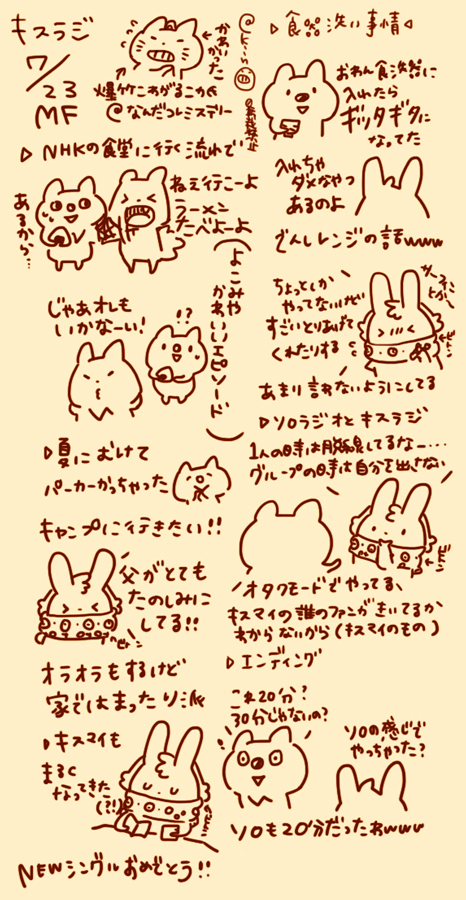 キスラジ
7/23
MF
かわいかった
爆竹こわがるこかC
@なんだコレミステリー
▷NHKの食堂に行く流れで
あるから…
ねぇ行こーよ
ラーメン
たべよーよ
よこみや
かわいいエピソード
じゃあオレも
いかなーい!
!?
▷夏にむけて
パーカーかっちゃった
キャンプに行きたい!!
父がとても
たのしみに
してる!!
オラオラもするけど
家ではまったり派
▷キスマイも
まるく
なってきた
(?!)
NEWシングルおめでとう!!
▷食器洗い事情◁
おわん食洗器に
入れたら
ギッタギタに
なってた
入れちゃ
ダメなやつ
あるのよ
でんしレンジの話www
ちょっとしか
やってないけど
すごいとりあげて
くれたりする
あまり言わないようにしてる
▷ソロラジオとキスラジ
1人の時は脱線してるなー…
グループの時は自分を出さない
オタクモードでやってる、
キスマイの誰のファンがきいてるか
わからないから(キスマイのもの)
▷エンディング
これ20分?
30分じゃないの?
ソロの感じで
やっちゃった?
ソロも20分だったわwww